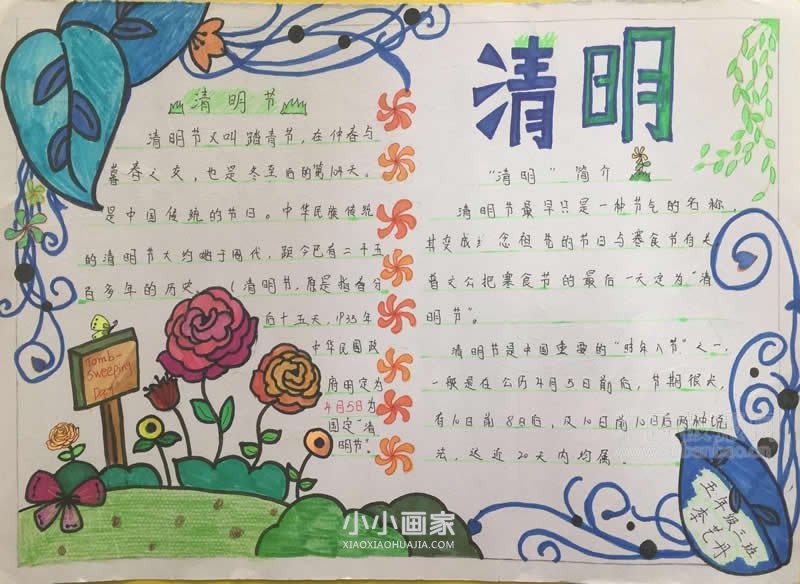 清明节
清明节又叫踏青节，在仲春与
暮春之交，也是冬至后的第108天。
是中国传统的节日。中华民族传统
的清明节大约始于周代，距今已有二千五
百多年的历史。（清明节，原是指春分
后十五天，1935年
中华民国政
府明定为
4月5日为
国定"清
明节"。
Tomb-
Sweeping
Day
清明
"清明"简介
清明节最早只是一种节气的名称，
其变成 念祖先的节日与寒食节有关
晋文公把寒食节的最后一天定为"清
明节"。
清明节是中国重要的"时年八节"之一，
一般是在公历4月5日前后，节期很长，
有10日前8日后，及10日前10日后两种说
法，这近20天内均属。
五年级三班
李艺丹
小小画家
XIAOXIAOHUAJIA.COM